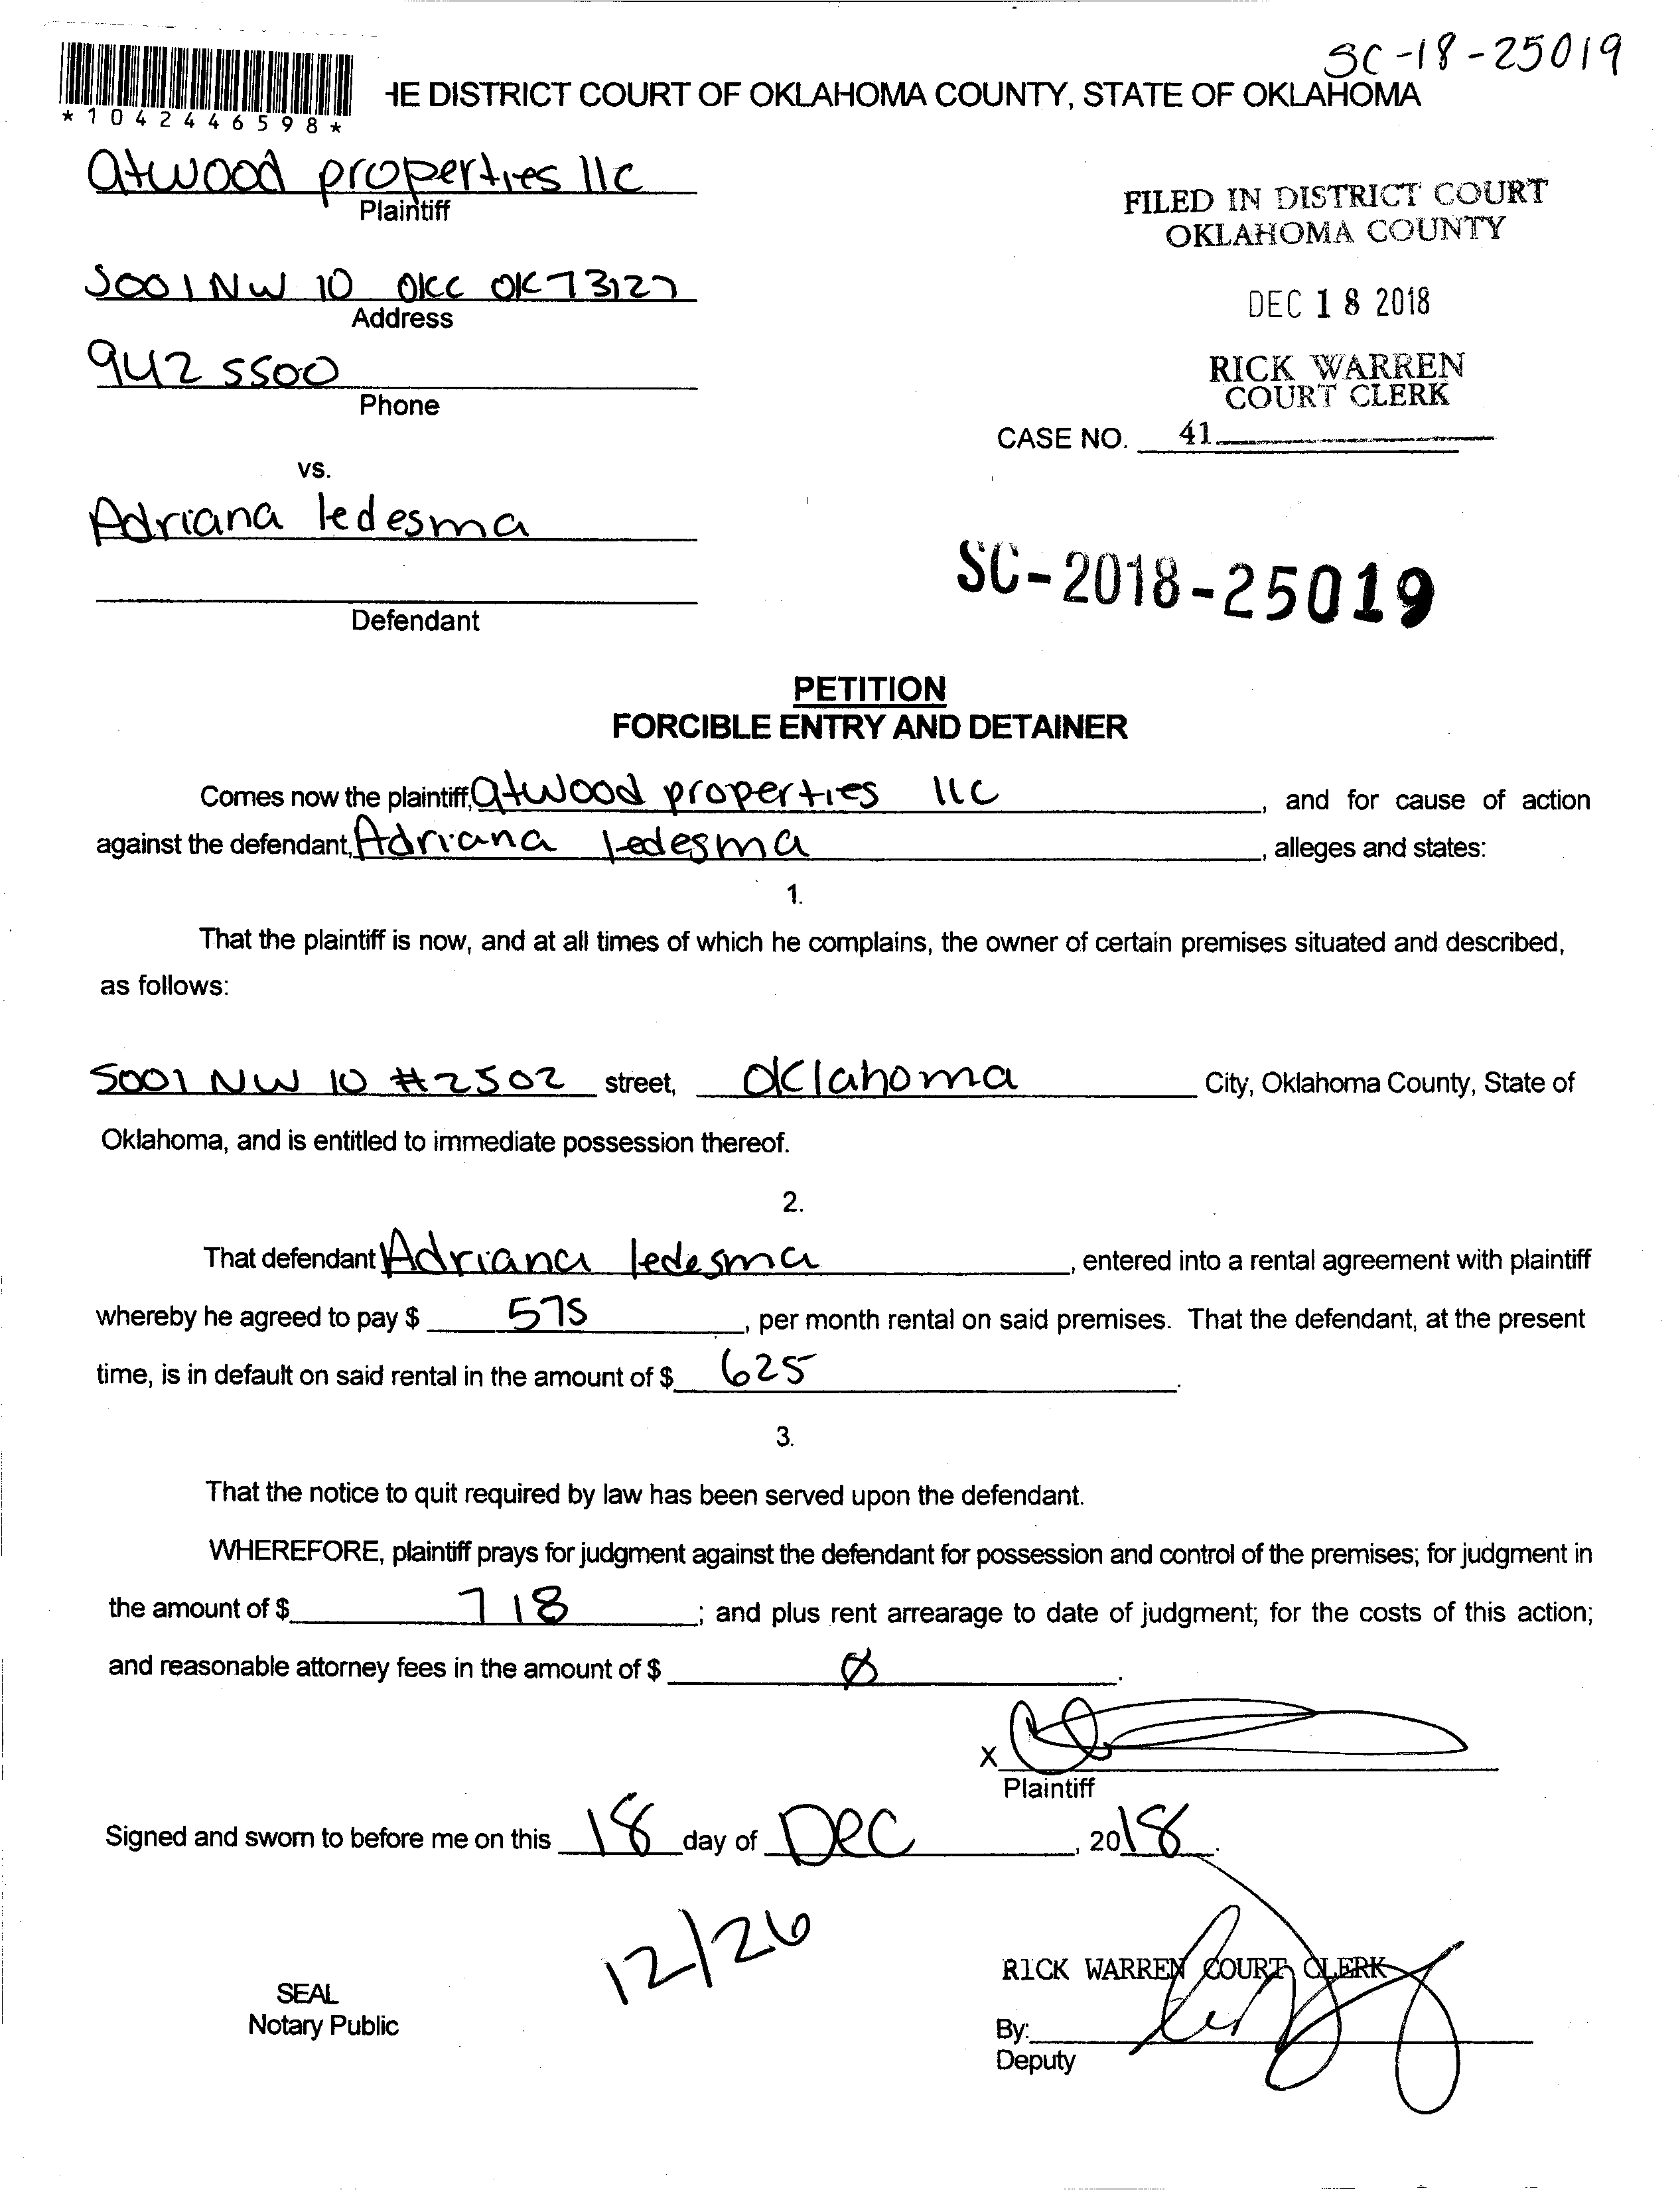 SC-18-25019
*1042446598*
HE DISTRICT COURT OF OKLAHOMA COUNTY, STATE OF OKLAHOMA
atwood properties llc
Plaintiff
FILED IN DISTRICT COURT
OKLAHOMA COUNTY
5001 NW 10 OKC OK 73127
Address
DEC 18 2018
942 5500
Phone
RICK WARREN
COURT CLERK
CASE NO. 41
vs.
Adriana ledesma
SC-2018-25019
Defendant
PETITION
FORCIBLE ENTRY AND DETAINER
Comes now the plaintiff, atwood properties llc, and for cause of action
against the defendant, Adriana ledesma, alleges and states:
1.
That the plaintiff is now, and at all times of which he complains, the owner of certain premises situated and described,
as follows:
5001 NW 10 #2502 street, Oklahoma City, Oklahoma County, State of
Oklahoma, and is entitled to immediate possession thereof.
2.
That defendant Adriana ledesma, entered into a rental agreement with plaintiff
whereby he agreed to pay $ 575, per month rental on said premises. That the defendant, at the present
time, is in default on said rental in the amount of $ 625.
3.
That the notice to quit required by law has been served upon the defendant.
WHEREFORE, plaintiff prays for judgment against the defendant for possession and control of the premises; for judgment in
the amount of $ 718; and plus rent arrearage to date of judgment; for the costs of this action;
and reasonable attorney fees in the amount of $ Ø.
X
Plaintiff
Signed and sworn to before me on this 18 day of Dec, 2018.
12/26
RICK WARREN COURT CLERK
SEAL
Notary Public
By:
Deputy